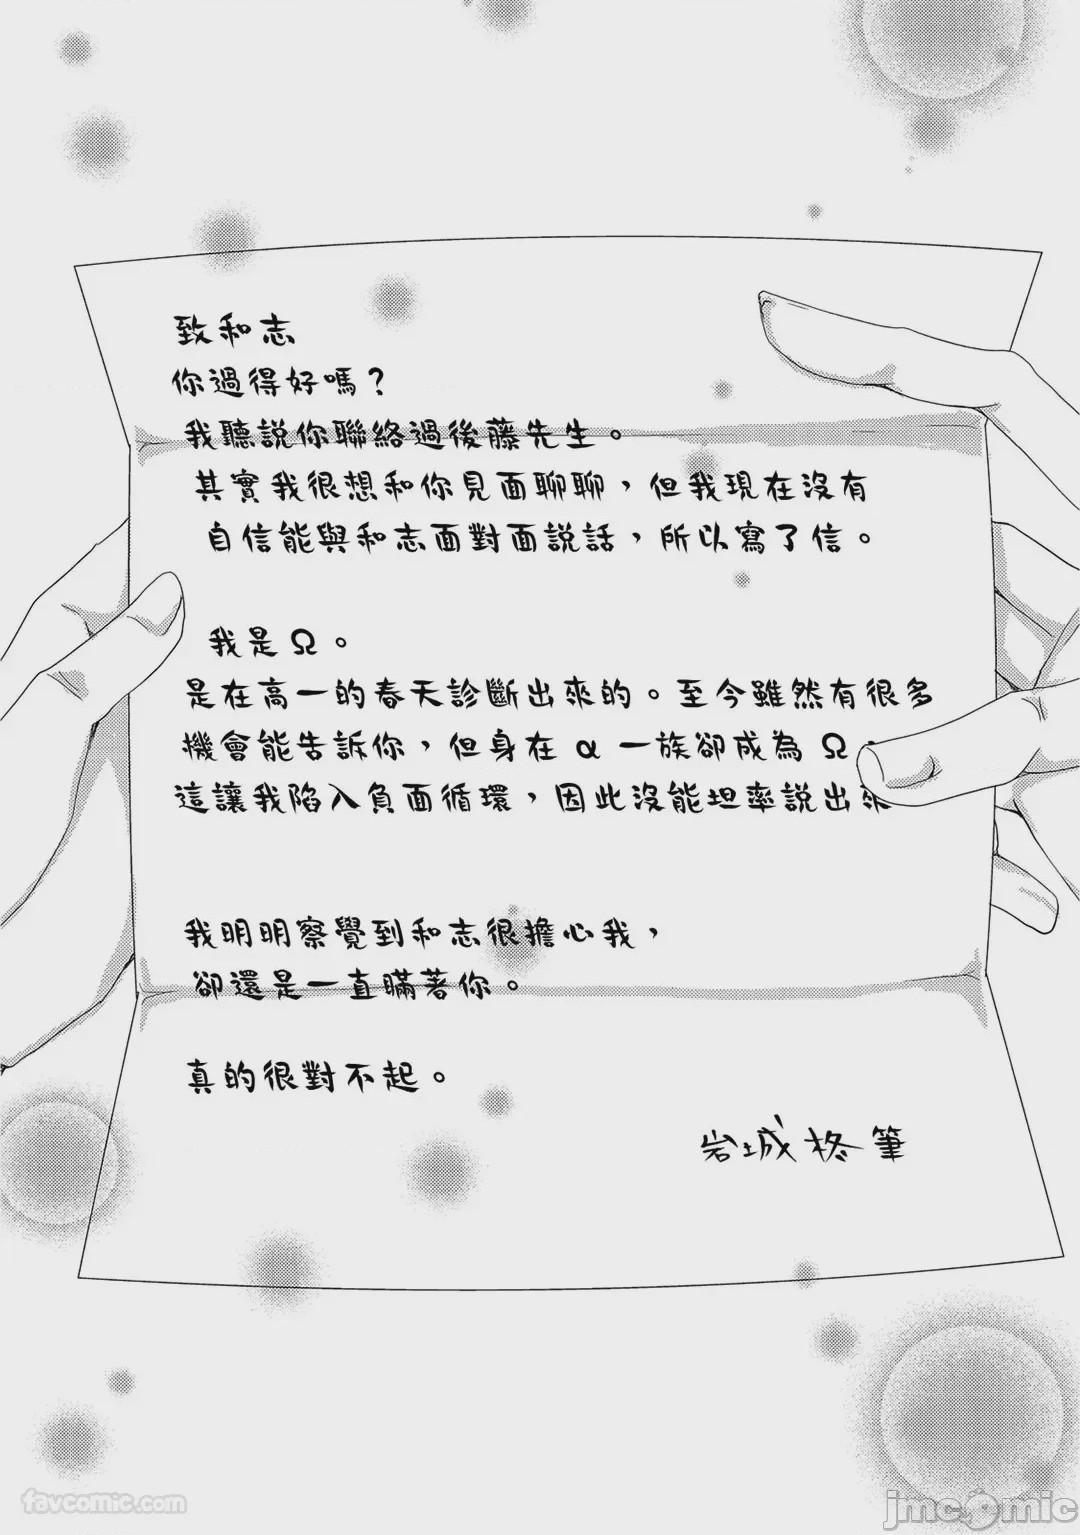 致和志
你過得好嗎？
我聽說你聯絡過後藤先生。
其實我很想和你見面聊聊，但我現在沒有
自信能與和志面對面說話，所以寫了信。
我是Ω。
是在高一的春天診斷出來的。至今雖然有很多
機會能告訴你，但身在α一族卻成為Ω，
這讓我陷入負面循環，因此沒能坦率說出來
我明明察覺到和志很擔心我，
卻還是一直瞞著你。
真的很對不起。
岩城柊筆
favcomic.com
jmcomic